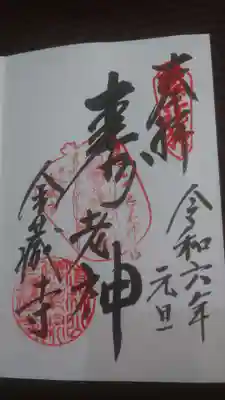 奉拝
令和六年
元旦
壽老神
金蔵寺